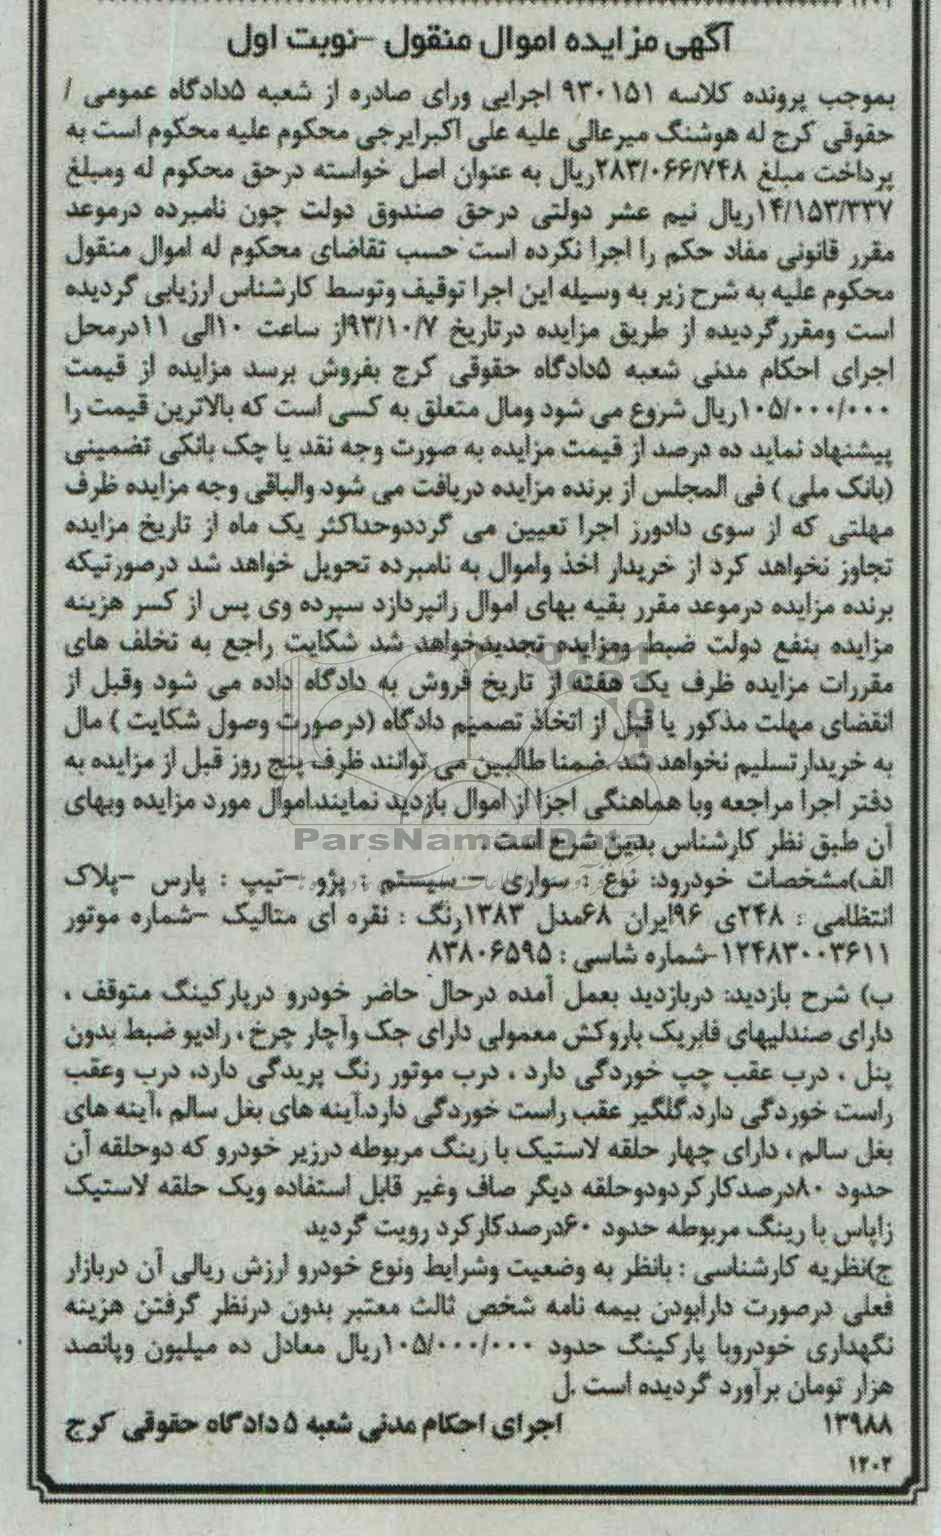 آگهی مزایده اموال منقول -نوبت اول
بموجب پرونده کلاسه ۹۳۰۱۵۱ اجرایی ورای صادره از شعبه ۵دادگاه عمومی /
حقوقی کرج له هوشنگ میرعالی علیه علی اکبرایرجی محکوم علیه محکوم است به
پرداخت مبلغ ۲۸۳/۰۶۶/۷۴۸ریال به عنوان اصل خواسته درحق محکوم له ومبلغ
۱۴/۱۵۳/۳۳۷ریال نیم عشر دولتی درحق صندوق دولت چون نامبرده درموعد
مقرر قانونی مفاد حکم را اجرا نکرده است حسب تقاضای محکوم له اموال منقول
محکوم علیه به شرح زیر به وسیله این اجرا توقیف وتوسط کارشناس ارزیابی گردیده
است ومقررگردیده از طریق مزایده درتاریخ ۹۳/۱۰/۷از ساعت ۱۰الی ۱۱درمحل
اجرای احکام مدنی شعبه ۵دادگاه حقوقی کرج بفروش برسد مزایده از قیمت
۱۰۵/۰۰۰/۰۰۰ریال شروع می شود ومال متعلق به کسی است که بالاترین قیمت را
پیشنهاد نماید ده درصد از قیمت مزایده به صورت وجه نقد یا چک بانکی تضمینی
(بانک ملی ) فی المجلس از برنده مزایده دریافت می شود والباقی وجه مزایده ظرف
مهلتی که از سوی دادورز اجرا تعیین می گرددوحداکثر یک ماه از تاریخ مزایده
تجاوز نخواهد کرد از خریدار اخذ واموال به نامبرده تحویل خواهد شد درصورتیکه
برنده مزایده درموعد مقرر بقیه بهای اموال رانپردازد سپرده وی پس از کسر هزینه
مزایده بنفع دولت ضبط ومزایده تجدیدخواهد شد شکایت راجع به تخلف های
مقررات مزایده ظرف یک هفته از تاریخ فروش به دادگاه داده می شود وقبل از
انقضای مهلت مذکور یا قبل از اتخاذ تصمیم دادگاه (درصورت وصول شکایت ) مال
به خریدارتسلیم نخواهد شد .ضمنا طالبین می توانند ظرف پنج روز قبل از مزایده به
دفتر اجرا مراجعه وبا هماهنگی اجرا از اموال بازدید نمایند.اموال مورد مزایده وبهای
آن طبق نظر کارشناس بدین شرح است .
ParsNamadData
الف)مشخصات خودرود: نوع : سواری - سیستم : پژو -تیپ : پارس -پلاک
انتظامی : ۲۴۸ی ۹۶ایران ۶۸مدل ۱۳۸۳رنگ : نقره ای متالیک -شماره موتور
۱۲۴۸۳۰۰۳۶۱۱-شماره شاسی : ۸۳۸۰۶۵۹۵
ب) شرح بازدید: دربازدید بعمل آمده درحال حاضر خودرو درپارکینگ متوقف ،
دارای صندلیهای فابریک باروکش معمولی دارای جک وآچار چرخ ، رادیو ضبط بدون
پنل ، درب عقب چپ خوردگی دارد ، درب موتور رنگ پریدگی دارد، درب وعقب
راست خوردگی دارد.گلگیر عقب راست خوردگی دارد.آینه های بغل سالم ،آینه های
بغل سالم ، دارای چهار حلقه لاستیک با رینگ مربوطه درزیر خودرو که دوحلقه آن
حدود ۸۰درصدکارکردودوحلقه دیگر صاف وغیر قابل استفاده ویک حلقه لاستیک
زاپاس با رینگ مربوطه حدود ۶۰درصدکارکرد رویت گردید
ج)نظریه کارشناسی : بانظر به وضعیت وشرایط ونوع خودرو ارزش ریالی آن دربازار
فعلی درصورت دارابودن بیمه نامه شخص ثالث معتبر بدون درنظر گرفتن هزینه
نگهداری خودروبا پارکینگ حدود ۱۰۵/۰۰۰/۰۰۰ریال معادل ده میلیون وپانصد
هزار تومان برآورد گردیده است .ل
۱۳۹۸۸ اجرای احکام مدنی شعبه ۵ دادگاه حقوقی کرج
۱۲۰۲